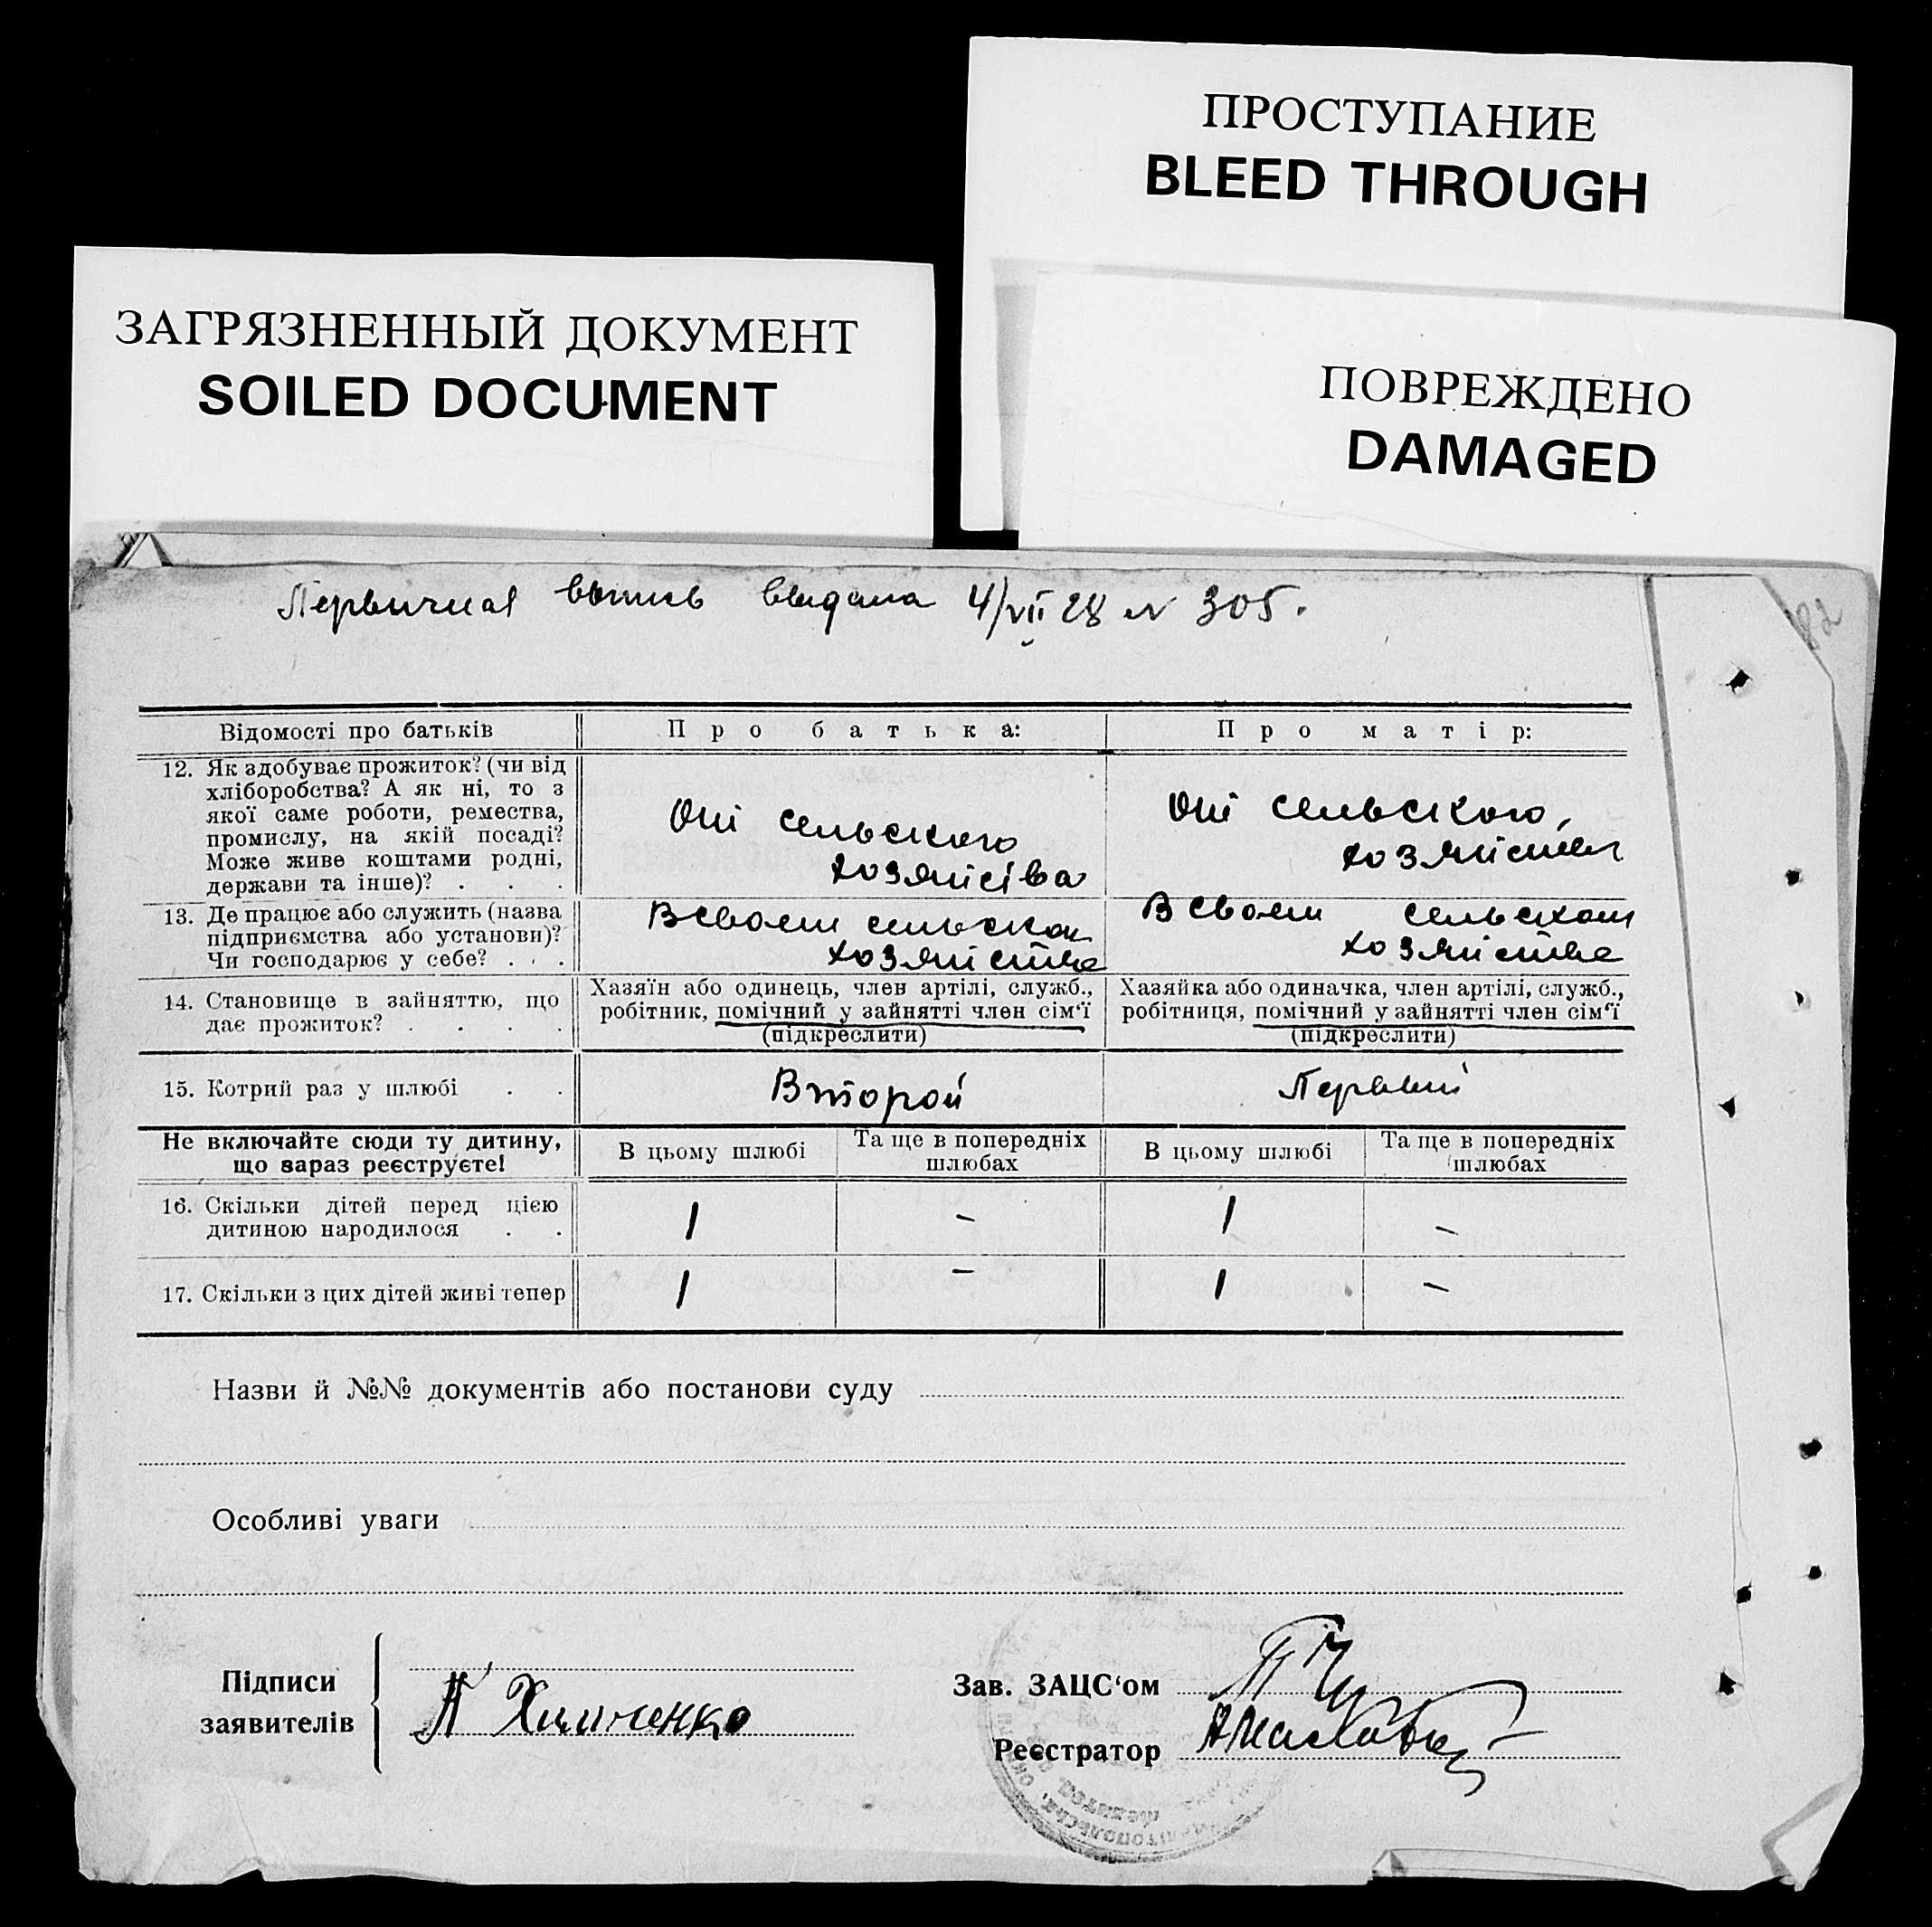 ПРОСТУПАНИЕ
BLEED THROUGH
ЗАГРЯЗНЕННЫЙ ДОКУМЕНТ
SOILED DOCUMENT
ПОВРЕЖДЕНО
DAMAGED
Первичная выпись выдана 4/VII 28 N 305.
82
Відомості про батьків
Про батька:
Про матір:
12. Як здобуває прожиток? (чи від
хліборобства? А як ні, то з
якої саме роботи, ремества,
промислу, на якій посаді?
Може живе коштами родні,
держави та інше)? . . .
От сельского
хозяйства
От сельского
хозяйства
13. Де працює або служить (назва
підприємства або установи)?
Чи господарює у себе? . . .
В своем сельском
хозяйстве
В своем сельском
хозяйстве
14. Становище в зайняттю, що
дає прожиток? . . . .
Хазяїн або одинець, член артілі, служб.,
робітник, помічний у зайнятті член сім‘ї
(підкреслити)
Хазяйка або одиначка, член артілі, служб.,
робітниця, помічний у зайнятті член сім‘ї
(підкреслити)
15. Котрий раз у шлюбі . .
Второй
Первый
Не включайте сюди ту дитину,
що зараз реєструєте!
В цьому шлюбі
Та ще в попередніх
шлюбах
В цьому шлюбі
Та ще в попередніх
шлюбах
16. Скільки дітей перед цією
дитиною народилося . .
1 – 1 –
17. Скільки з цих дітей живі тепер
1 – 1 –
Назви й №№ документів або постанови суду
Особливі уваги
Підписи
заявителів
Зав. ЗАЦС‘ом
Реєстратор